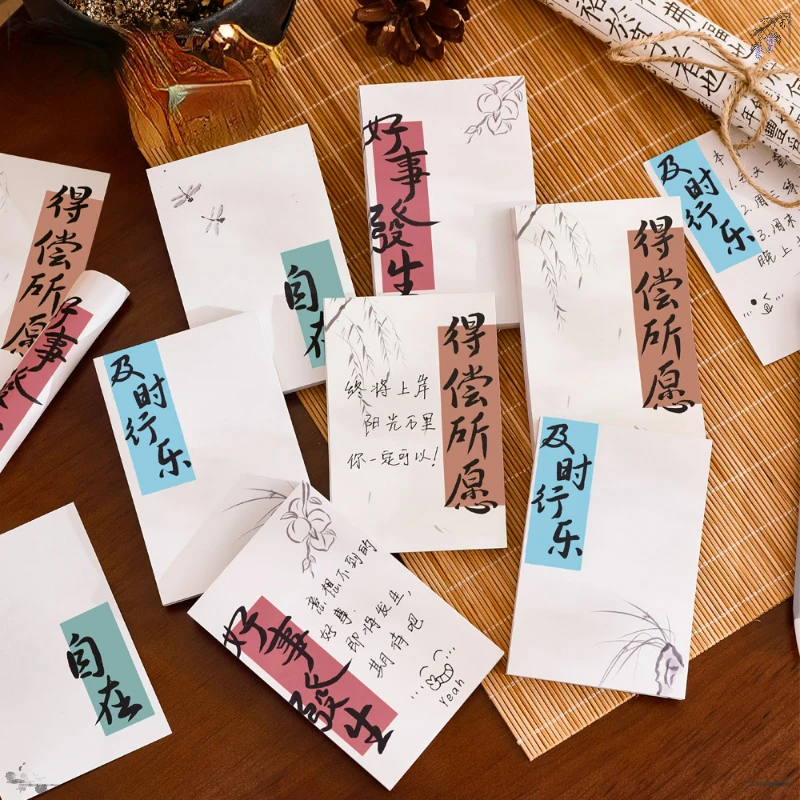 得偿所愿
好事發
自在
好事發生
得偿所愿
及时行乐
本
2.周三
3.周末
晚上
及时行乐
终将上岸
阳光万里
你一定可以!
得偿所愿
及时行乐
自在
好事發生
意想不到的
好事,
即将发生,
期待吧
Yeah